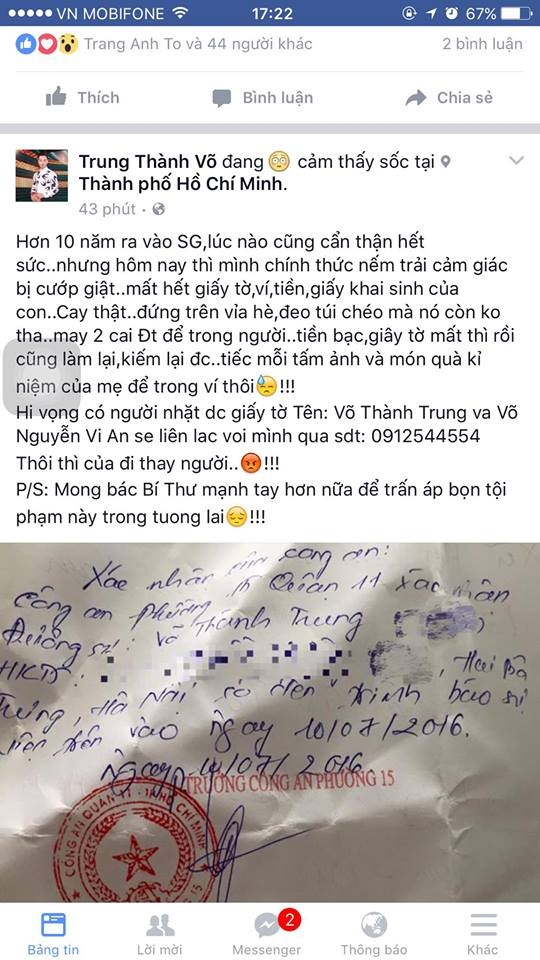 VN MOBIFONE 17:22 67%
Trang Anh To và 44 người khác 2 bình luận
Thích Bình luận Chia sẻ
Trung Thành Võ đang cảm thấy sốc tại
Thành phố Hồ Chí Minh.
43 phút
Hơn 10 năm ra vào SG,lúc nào cũng cẩn thận hết
sức..nhưng hôm nay thì mình chính thức nếm trải cảm giác
bị cướp giật..mất hết giấy tờ,ví,tiền,giấy khai sinh của
con..Cay thật..đứng trên vỉa hè,đeo túi chéo mà nó còn ko
tha..may 2 cai Đt để trong người..tiền bạc,giây tờ mất thì rồi
cũng làm lại,kiếm lại đc..tiếc mỗi tấm ảnh và món quà kỉ
niệm của mẹ để trong ví thôi😓!!!
Hi vọng có người nhặt dc giấy tờ Tên: Võ Thành Trung va Võ
Nguyễn Vi An se liên lac voi mình qua sdt: 0912544554
Thôi thì của đi thay người..😡!!!
P/S: Mong bác Bí Thư mạnh tay hơn nữa để trấn áp bọn tội
phạm này trong tuong lai😔!!!
Xác nhận của công an:
Công an phường 15 Quận 11 xác nhận
Đương sự: Võ Thành Trung
HKTT: , Hai Bà
Trưng, Hà Nội có đến trình báo sự
việc trên vào ngày 10/07/2016.
Ngày 10/07/2016
TRƯỞNG CÔNG AN PHƯỜNG 15
CÔNG AN QUẬN 11 TP HỒ CHÍ MINH
2
Bảng tin Lời mời Messenger Thông báo Khác